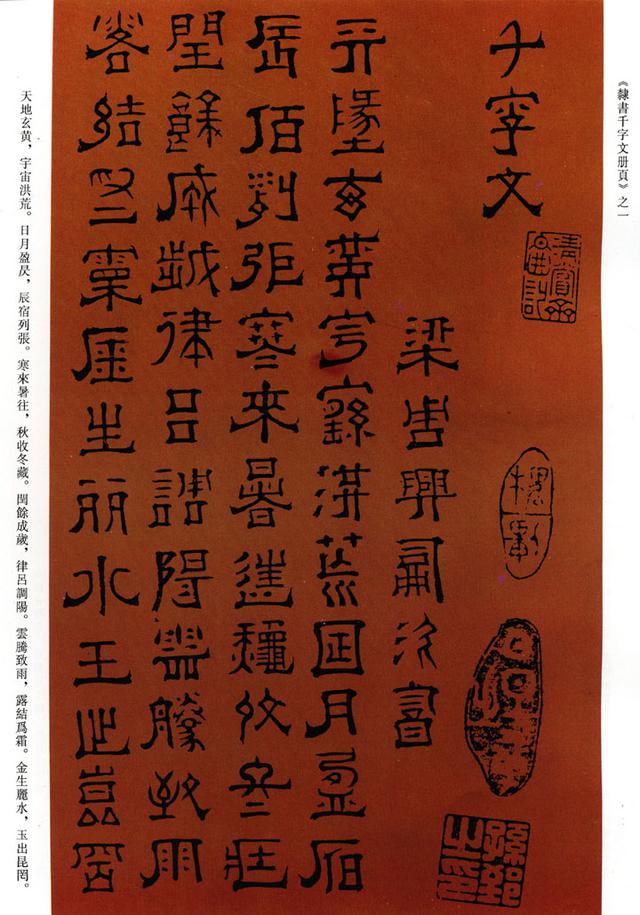 《隸書千字文册頁》之一
千字文
梁周興嗣次
天墬玄黃宇宙洪荒日月盈昃
辰宿列張寒來暑往秋收冬藏
閏餘成歲律呂調陽雲騰致雨
露結爲霜金生丽水玉出崑岡
天地玄黄，宇宙洪荒。日月盈昃，辰宿列張。寒來暑往，秋收冬藏。閏餘成歲，律呂調陽。雲騰致雨，露結爲霜。金生麗水，玉出昆罔。